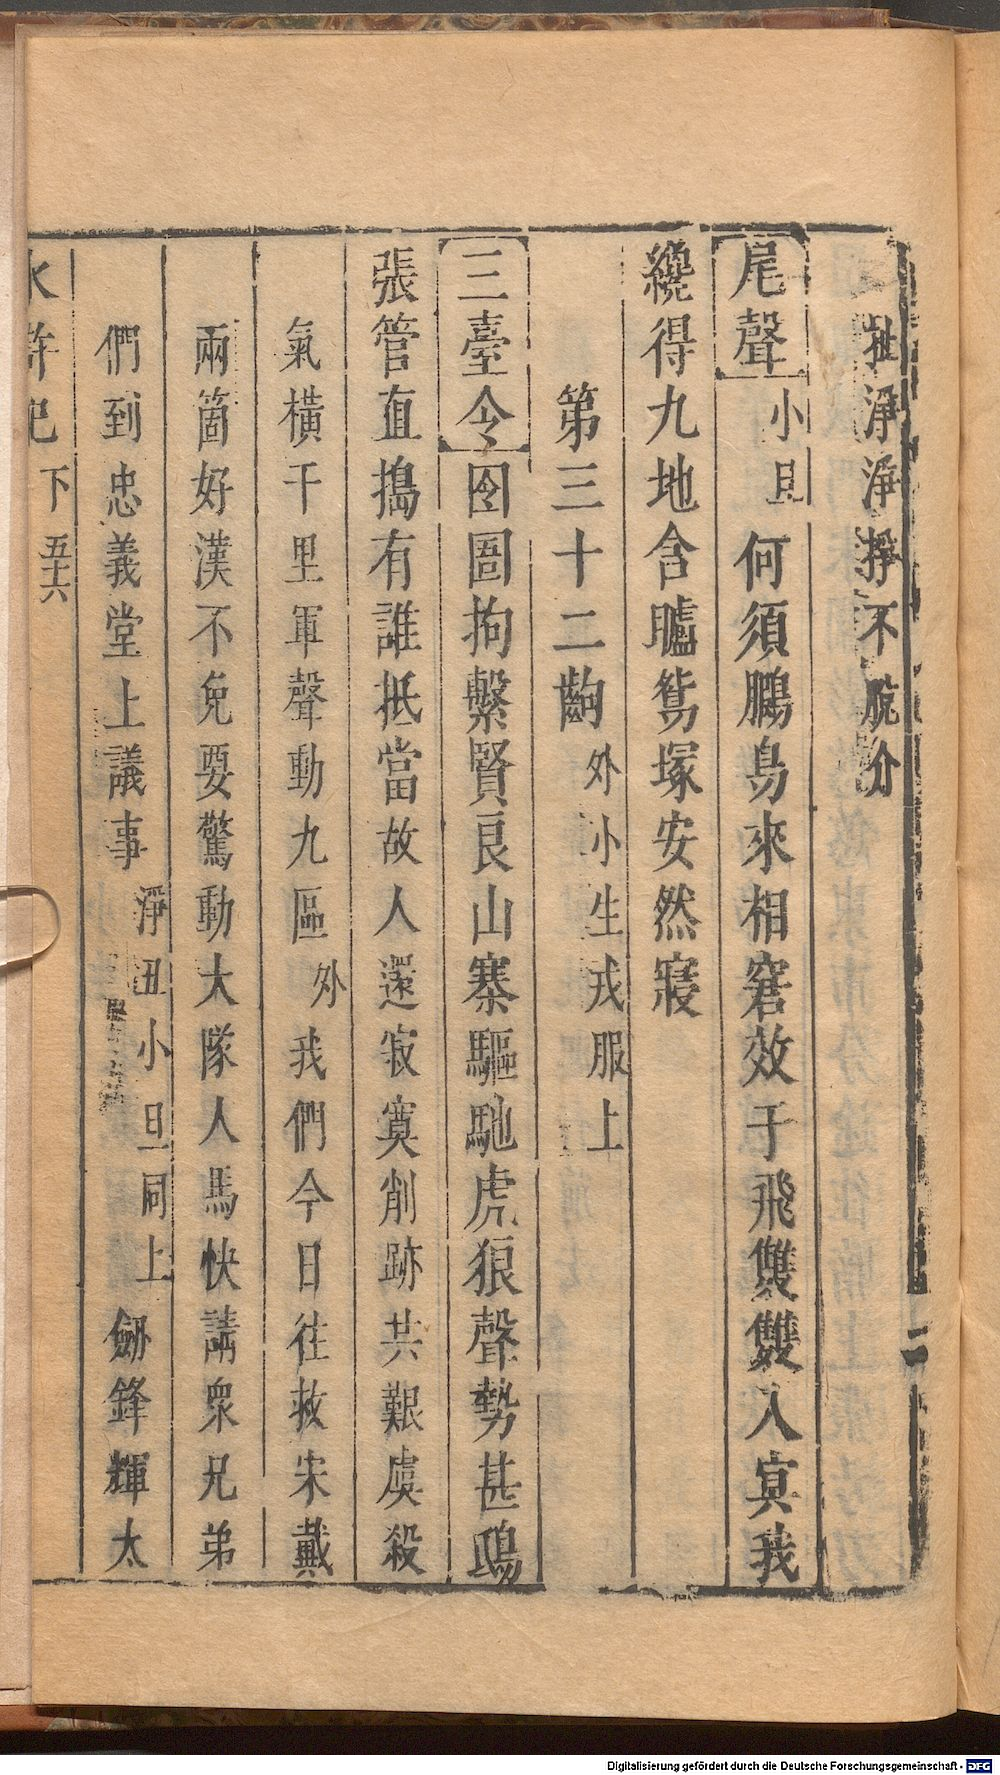 扯淨淨掙不脫介
尾聲 小旦 何須鵬鳥來相窘效于飛雙雙入冥我
纔得九地含瞳鴛塚安然寢
第三十二齣 外小生戎服上
三臺令 囹圄拘繫賢良山寨驅馳虎狼聲勢甚鴟
張管直搗有誰抵當故人還寂寞削跡共艱虞殺
氣橫千里軍聲動九區 外 我們今日往救宋戴
兩箇好漢不免要驚動大隊人馬快請衆兄弟
們到忠義堂上議事 淨丑小旦同上 劒鋒輝太
水滸記 下 五六
Digitalisierung gefördert durch die Deutsche Forschungsgemeinschaft - DFG